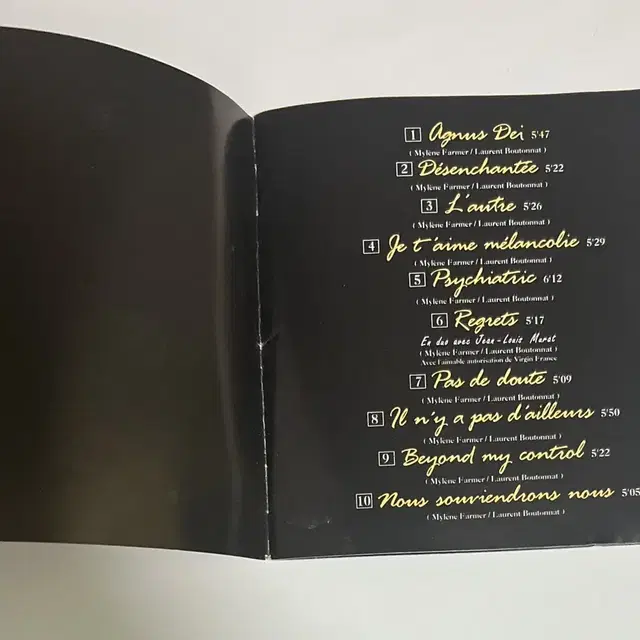 1 Agnus Dei 5'47
( Mylène Farmer / Laurent Boutonnat )
2 Désenchantée 5'22
( Mylène Farmer / Laurent Boutonnat )
3 L'autre 5'26
( Mylène Farmer / Laurent Boutonnat )
4 Je t'aime mélancolie 5'29
( Mylène Farmer / Laurent Boutonnat )
5 Psychiatric 6'12
( Mylène Farmer / Laurent Boutonnat )
6 Regrets 5'17
En duo avec Jean-Louis Murat
( Mylène Farmer / Laurent Boutonnat )
Avec l'aimable autorisation de Virgin France
7 Pas de doute 5'09
( Mylène Farmer / Laurent Boutonnat )
8 Il n'y a pas d'ailleurs 5'50
( Mylène Farmer / Laurent Boutonnat )
9 Beyond my control 5'22
( Mylène Farmer / Laurent Boutonnat )
10 Nous souviendrons nous 5'05
( Mylène Farmer / Laurent Boutonnat )